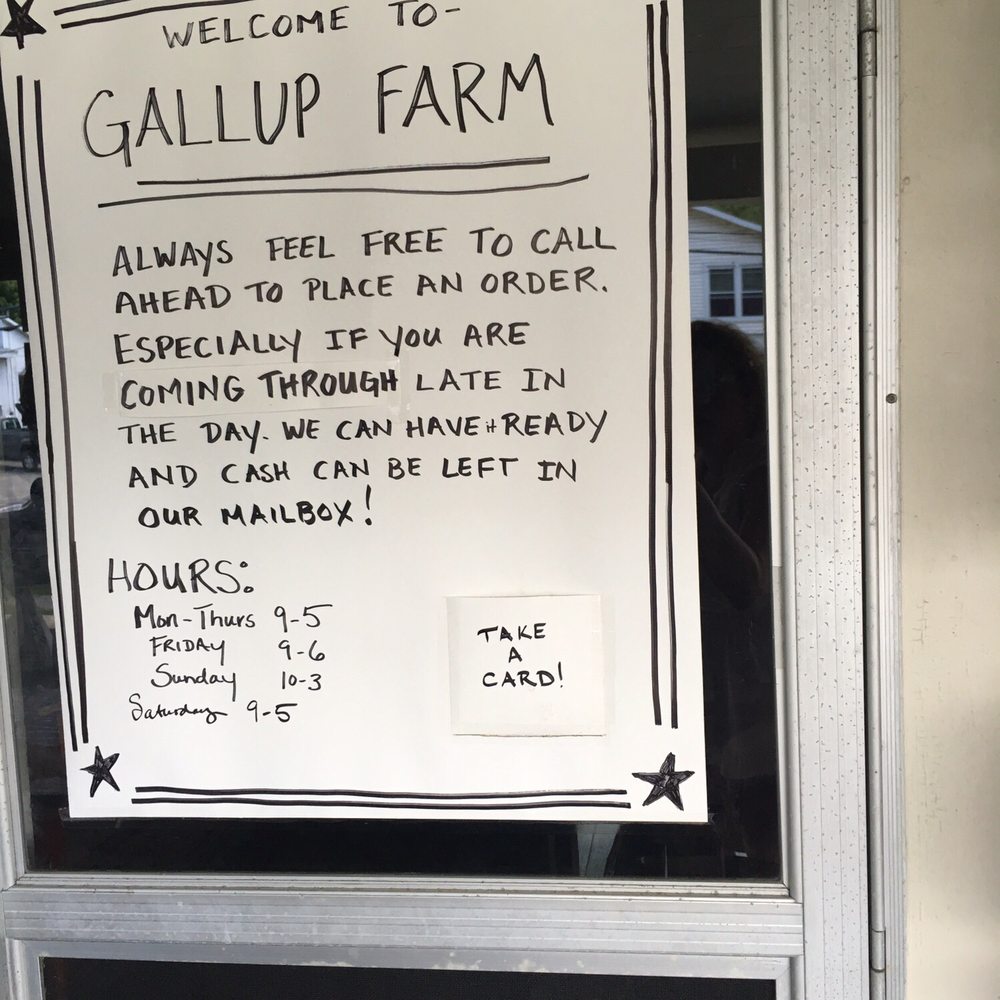 WELCOME TO-
GALLUP FARM
ALWAYS FEEL FREE TO CALL
AHEAD TO PLACE AN ORDER.
ESPECIALLY IF YOU ARE
COMING THROUGH LATE IN
THE DAY. WE CAN HAVE it READY
AND CASH CAN BE LEFT IN
OUR MAILBOX!
HOURS:
Mon-Thurs 9-5
FRIDAY 9-6
Sunday 10-3
Saturday 9-5
TAKE
A
CARD!